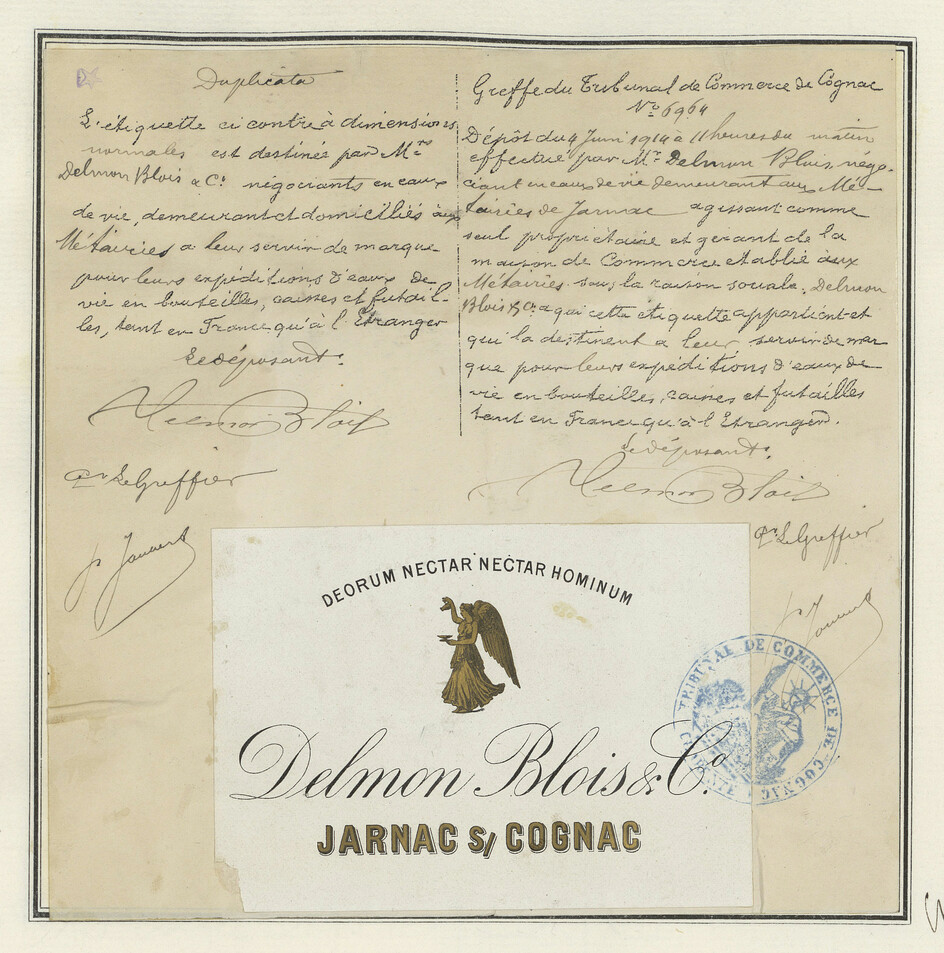 Duplicata
L'étiquette ci contre à dimensions
normales est destinée par Mrs
Delmon Blois & Co négociants en eaux
de vie, demeurant et domiciliés aux
Métairies a leur servir de marque
pour leurs expéditions d'eaux de
vie en bouteilles, caisses et futail-
les, tant en France qu'à l'Etranger
Le déposant.
Delmon Blois
Pr Le Greffier
Greffe du Tribunal de Commerce de Cognac
No 6964
Dépôt du 4 Juin 1914 à 11 heures du matin
effectué par Mr Delmon Blois, négo-
ciant en eaux de vie demeurant aux Mé-
tairies de Jarnac agissant comme
seul propriétaire et gérant de la
maison de Commerce etablie aux
Métairies sous la raison sociale. Delmon
Blois & Co a qui cette étiquette appartient et
qui la destinent a leur servir de mar
que pour leurs expéditions d'eaux de
vie en bouteilles, caisses et futailles
tant en France qu'à l'Etranger.
Le déposant.
Delmon Blois
Pr Le Greffier
DEORUM NECTAR NECTAR HOMINUM
Delmon Blois & Co.
JARNAC S/ COGNAC
TRIBUNAL DE COMMERCE DE COGNAC